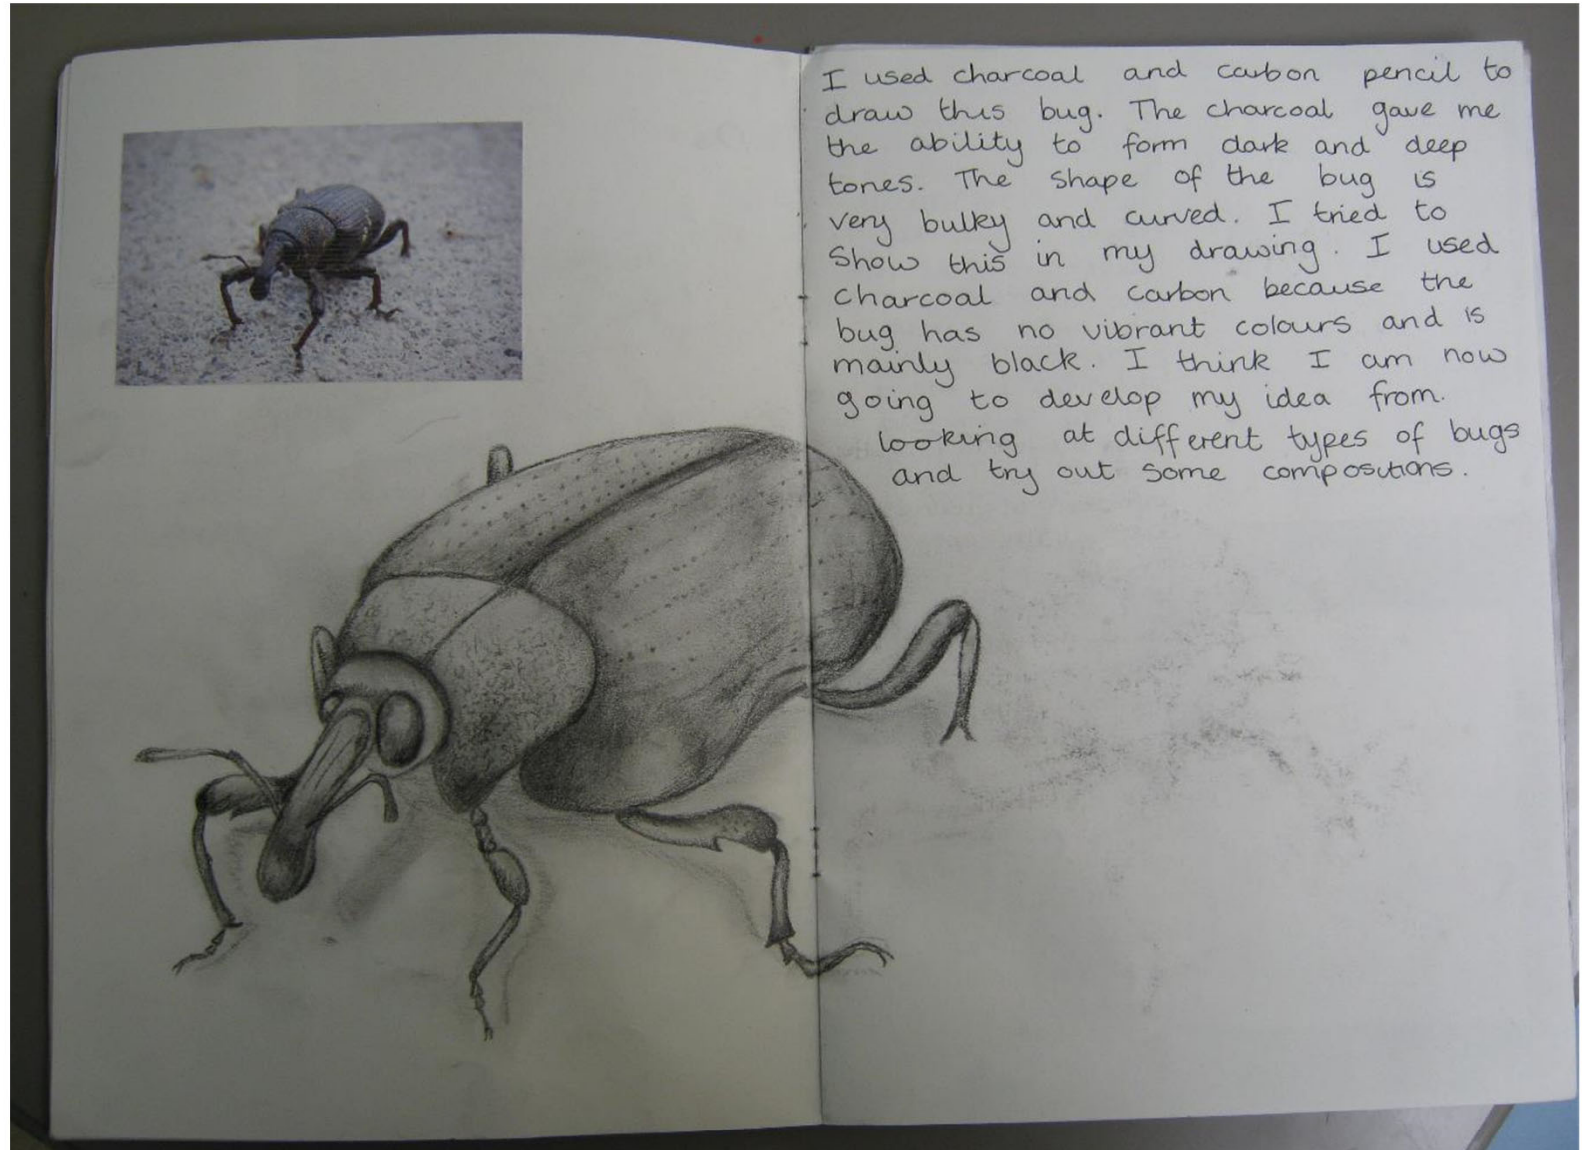 I used charcoal and carbon pencil to
draw this bug. The charcoal gave me
the ability to form dark and deep
tones. The shape of the bug is
very bulky and curved. I tried to
show this in my drawing. I used
charcoal and carbon because the
bug has no vibrant colours and is
mainly black. I think I am now
going to develop my idea from.
looking at different types of bugs
and try out some compositions.